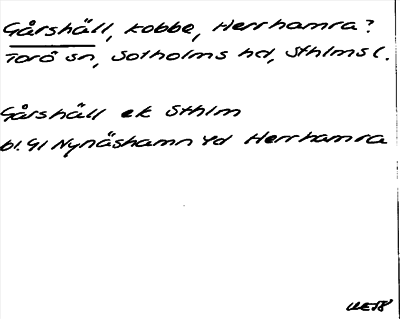 Gårshäll, kobbe, Herrhamra?
Torö sn, Sotholms hd, Sthlms l.
Gårshäll ek Sthlm
bl. 91 Nynäshamn Yd Herrhamra